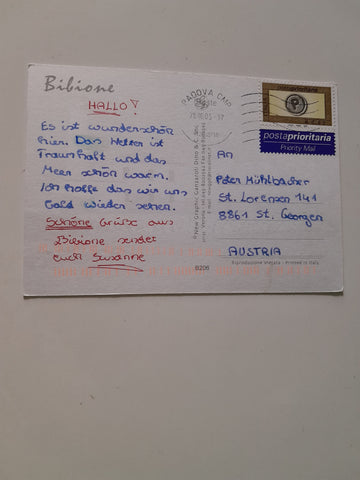 Bibione
HALLO!
Es ist wunderschön
hier. Das Wetter ist
Traumhaft und das
Meer schön warm.
Ich hoffe das wir uns
Bald wieder sehen.
Schöne Grüße aus
Bibione sendet
euch Susanne
PADOVA CMP
postaprioritaria
postaprioritaria
Priority Mail
An
Peter Mühlbacher
St. Lorenzen 141
8861 St. Georgen
AUSTRIA
B206
Riproduzione Vietata - Printed in Italy